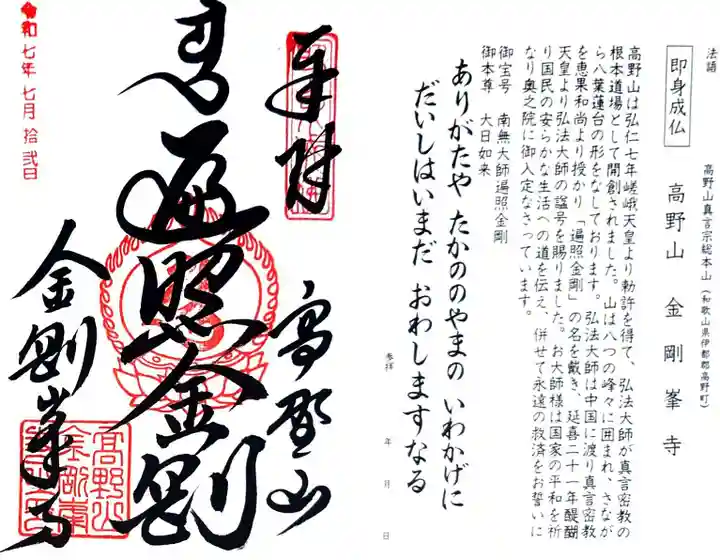 法語
即身成仏
高野山真言宗総本山(和歌山県伊都郡高野町)
高野山 金剛峯寺
高野山は弘仁七年嵯峨天皇より勅許を得て、弘法大師が真言密教の
根本道場として開創されました。山は八つの峰々に囲まれ、さなが
ら八葉蓮台の形をなしております。弘法大師は中国に渡り真言密教
を恵果和尚より授かり「遍照金剛」の名を戴き、延喜二十一年醍醐
天皇より弘法大師の諡号を賜りました。お大師様は国家の平和を祈
り国民の安らかな生活への道を伝え、併せて永遠の救済をお誓いに
なり奥之院に御入定なさっています。
御宝号 南無大師遍照金剛
御本尊 大日如来
ありがたや たかののやまの いわかげに
だいしはいまだ おわしますなる
参拝 年 月 日
奉拝
高野山
遍照金剛
金剛峯寺
令和七年七月拾弐日
高野山
金剛峯